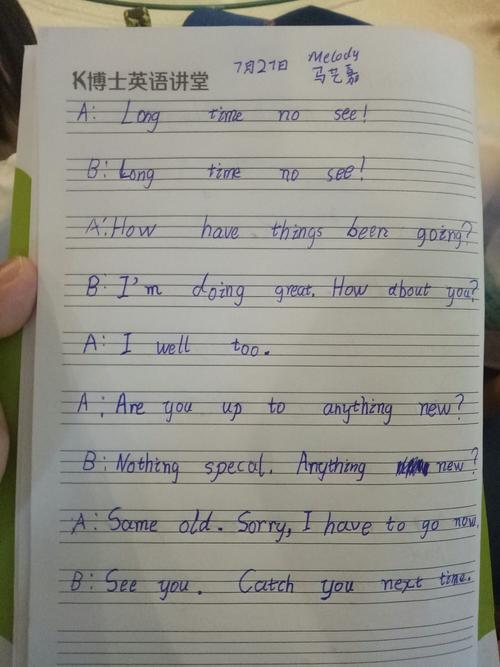 7月27日 Melody
K博士英语讲堂 马艺嘉
A: Long time no see!
B: Long time no see!
A: How have things been going?
B: I'm doing great. How about you?
A: I well too.
A: Are you up to anything new?
B: Nothing specal. Anything new?
A: Same old. Sorry, I have to go now.
B: See you. Catch you next time.